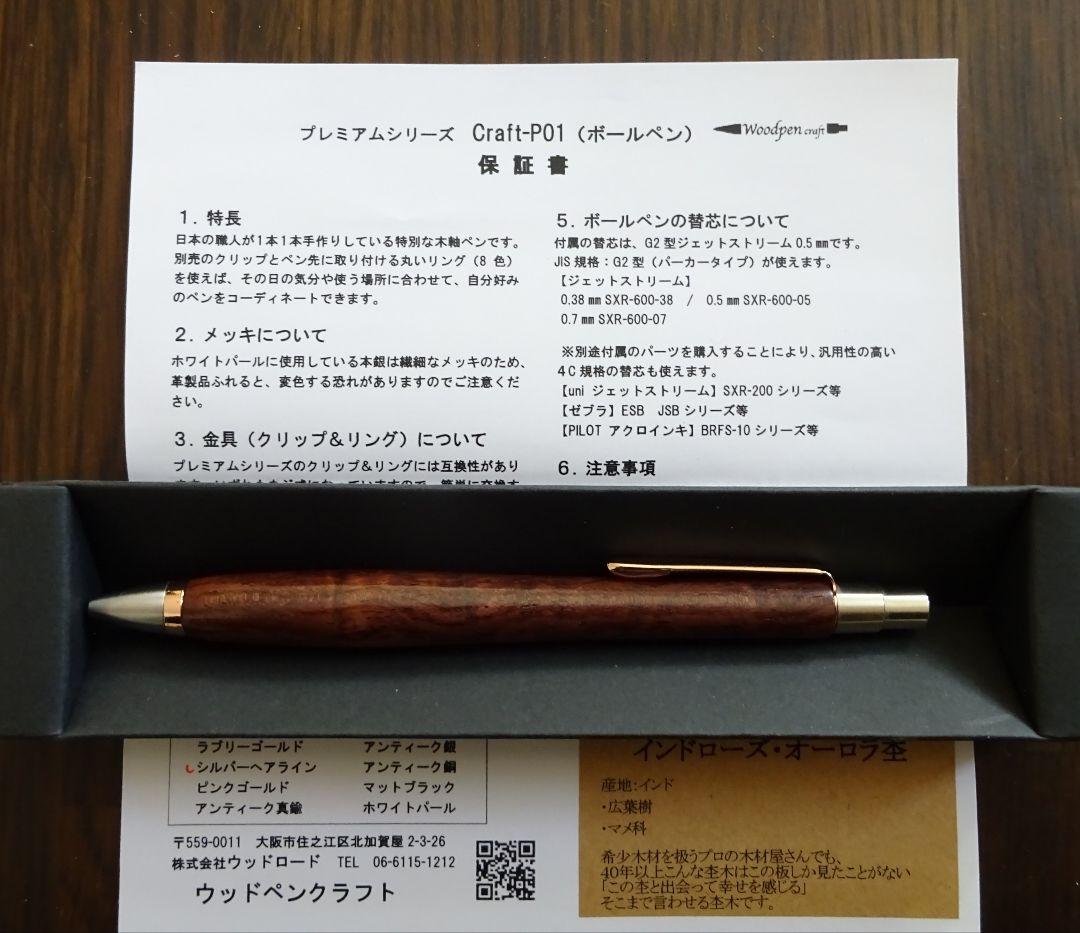 プレミアムシリーズ Craft-P01（ボールペン） Woodpen craft
保証書
1．特長
日本の職人が1本1本手作りしている特別な木軸ペンです。
別売のクリップとペン先に取り付ける丸いリング（8 色）
を使えば、その日の気分や使う場所に合わせて、自分好み
のペンをコーディネートできます。
2．メッキについて
ホワイトパールに使用している本銀は繊細なメッキのため、
革製品ふれると、変色する恐れがありますのでご注意くだ
さい。
3．金具（クリップ＆リング）について
プレミアムシリーズのクリップ＆リングには互換性があり
5．ボールペンの替芯について
付属の替芯は、G2 型ジェットストリーム 0.5 ㎜です。
JIS 規格：G2 型（パーカータイプ）が使えます。
【ジェットストリーム】
0.38 ㎜ SXR-600-38 / 0.5 ㎜ SXR-600-05
0.7 ㎜ SXR-600-07
※別途付属のパーツを購入することにより、汎用性の高い
4C 規格の替芯も使えます。
【uni ジェットストリーム】SXR-200 シリーズ等
【ゼブラ】ESB JSB シリーズ等
【PILOT アクロインキ】BRFS-10 シリーズ等
6．注意事項
ラブリーゴールド アンティーク銀
シルバーヘアライン アンティーク銅
ピンクゴールド マットブラック
アンティーク真鍮 ホワイトパール
〒559-0011 大阪市住之江区北加賀屋 2-3-26
株式会社ウッドロード TEL 06-6115-1212
ウッドペンクラフト
インドローズ・オーロラ杢
産地：インド
・広葉樹
・マメ科
希少木材を扱うプロの木材屋さんでも、
40年以上こんな杢木はこの板しか見たことがない
「この杢と出会って幸せを感じる」
そこまで言わせる杢木です。